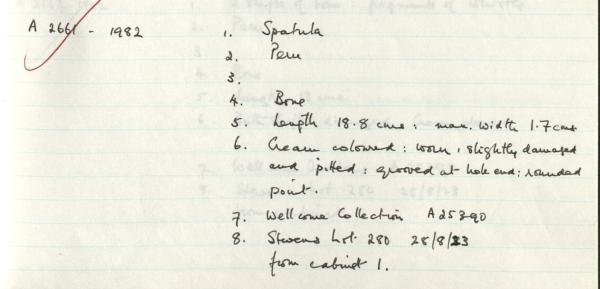 A 2661 - 1982
1. Spatula
2. Peru
3.
4. Bone
5. Length 18.8 cms : max. width 1.7 cms
6. Cream coloured : worn, slightly damaged
and pitted : grooved at hole end : rounded
point.
7. Wellcome Collection A25390
8. Stevens Lot 280 28/8/23
from cabinet 1.